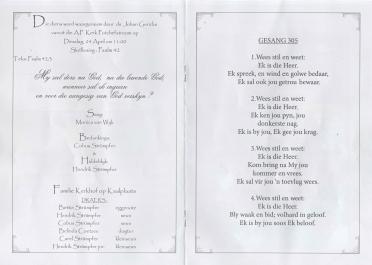 Die diens word waargeneem deur ds. Johan Gericke
vanuit die AP Kerk Potchefstroom op
Dinsdag, 24 April om 11:00
Skriflesing: Psalm 42
Teks: Psalm 42:3
My siel dors na God, na die lewende God;
wanneer sal ek ingaan
en voor die aangesig van God verskyn?
Sang
Monica van Wyk
Bedankings
Cobus Strümpfer
&
Huldeblyk
Hendrik Strümpfer
Familie Kerkhof op Kaalplaats
DRAERS:
Bettie Strümpfer eggenote
Hendrik Strümpfer seun
Cobus Strümpfer seun
Belinda Coetzee dogter
Carel Strümpfer kleinseun
Hendrik Strümpfer jnr. kleinseun
GESANG 305
1.Wees stil en weet:
Ek is die Heer.
Ek spreek, en wind en golwe bedaar,
Ek sal ook jou getrou bewaar.
2.Wees stil en weet:
Ek is die Heer.
Ek ken jou pyn, jou
donkerste nag.
Ek is by jou, Ek gee jou krag.
3.Wees stil en weet:
Ek is die Heer.
Kom bring na My jou
kommer en vrees.
Ek sal vir jou 'n toevlug wees.
4.Wees stil en weet:
Ek is die Heer.
Bly waak en bid; volhard in geloof.
Ek is by jou soos Ek beloof.